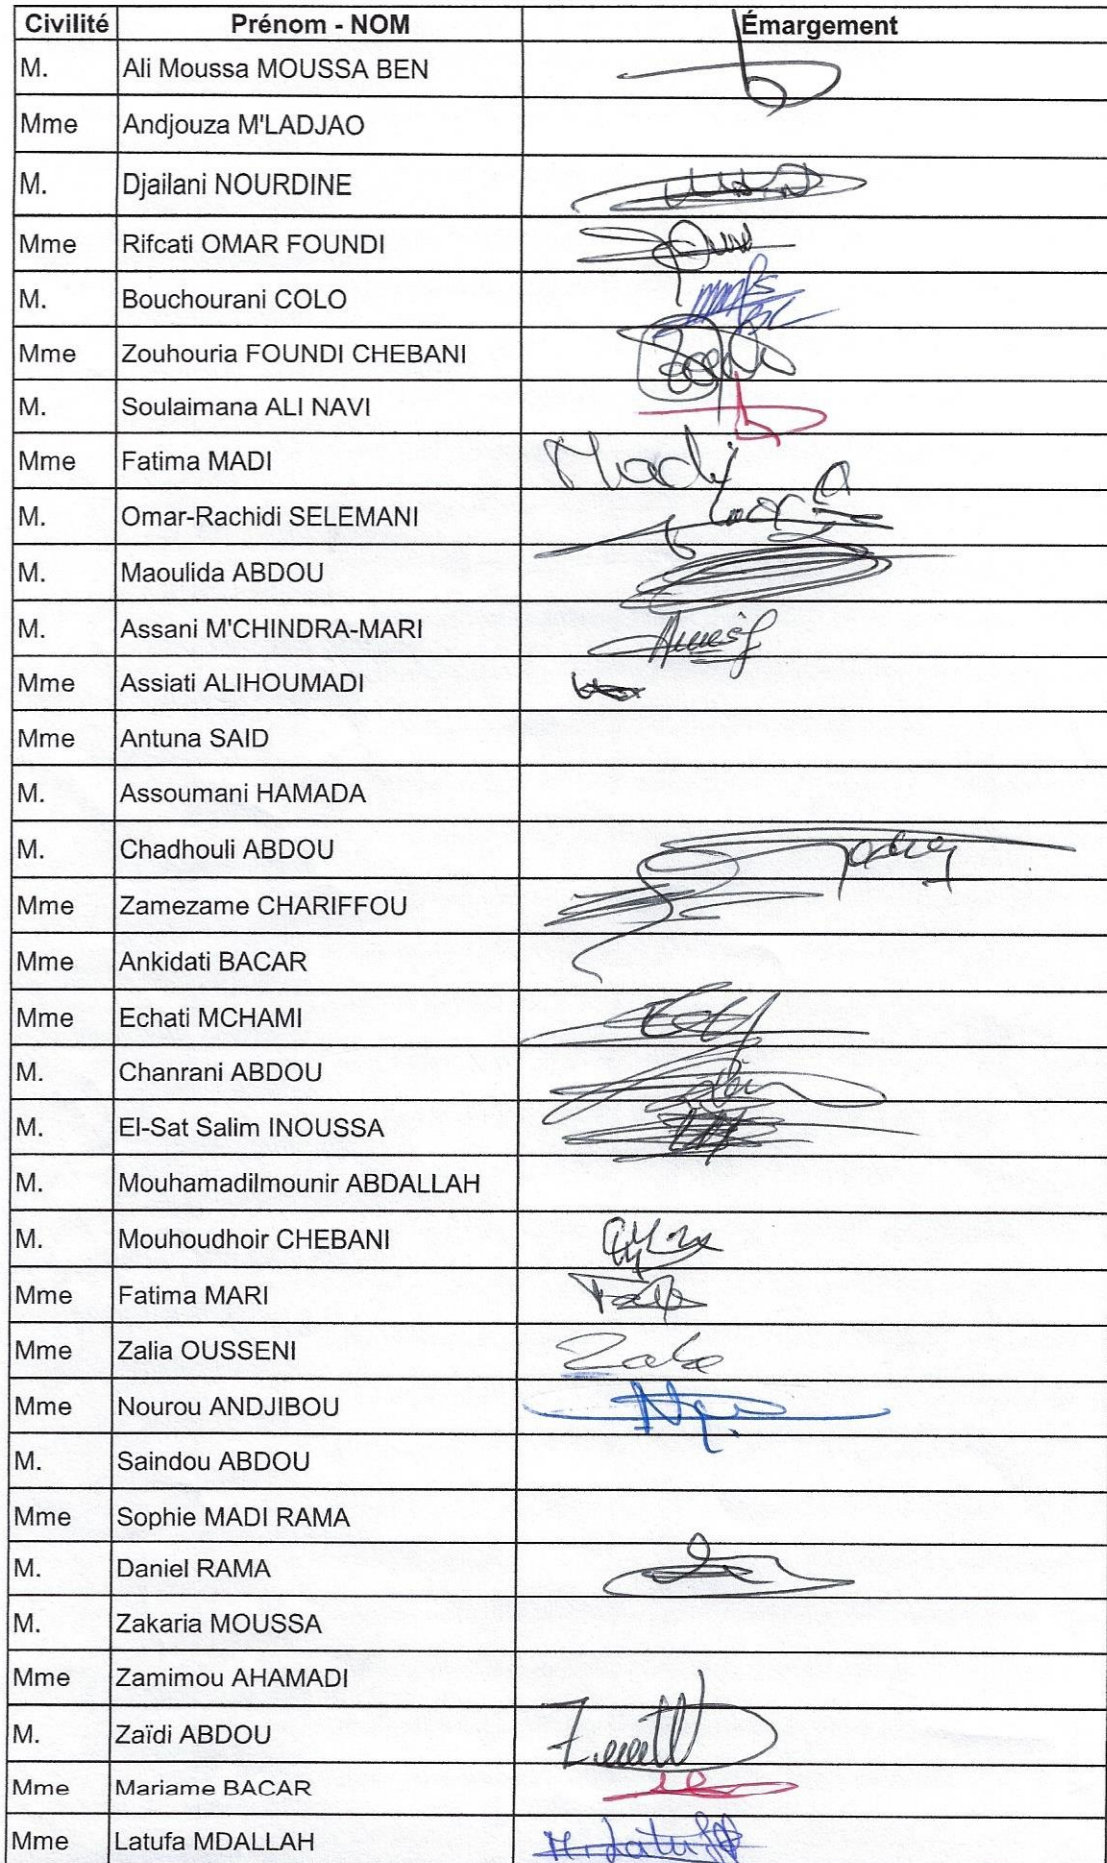 Civilité Prénom - NOM Émargement
M. Ali Moussa MOUSSA BEN
Mme Andjouza M'LADJAO
M. Djailani NOURDINE
Mme Rifcati OMAR FOUNDI
M. Bouchourani COLO
Mme Zouhouria FOUNDI CHEBANI
M. Soulaimana ALI NAVI
Mme Fatima MADI Madi
M. Omar-Rachidi SELEMANI
M. Maoulida ABDOU
M. Assani M'CHINDRA-MARI
Mme Assiati ALIHOUMADI
Mme Antuna SAID
M. Assoumani HAMADA
M. Chadhouli ABDOU
Mme Zamezame CHARIFFOU
Mme Ankidati BACAR
Mme Echati MCHAMI
M. Chanrani ABDOU
M. El-Sat Salim INOUSSA
M. Mouhamadilmounir ABDALLAH
M. Mouhoudhoir CHEBANI
Mme Fatima MARI
Mme Zalia OUSSENI
Mme Nourou ANDJIBOU
M. Saindou ABDOU
Mme Sophie MADI RAMA
M. Daniel RAMA
M. Zakaria MOUSSA
Mme Zamimou AHAMADI
M. Zaïdi ABDOU
Mme Mariame BACAR
Mme Latufa MDALLAH